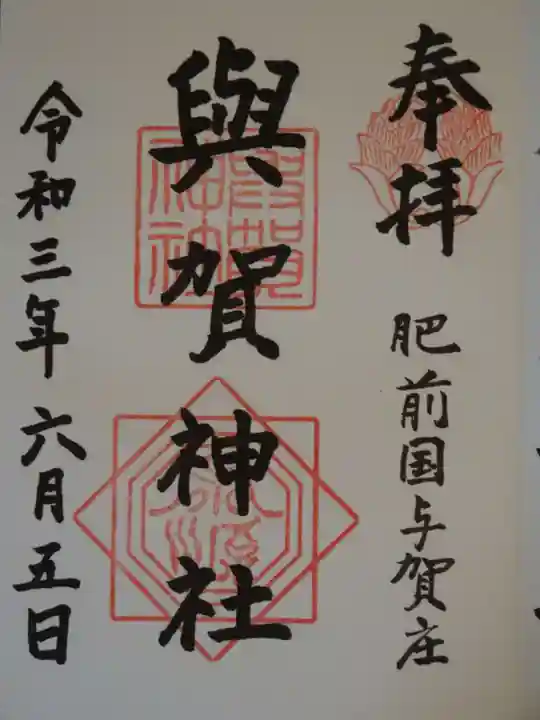 奉拝
肥前国与賀庄
與賀神社
與賀神社
令和三年六月五日